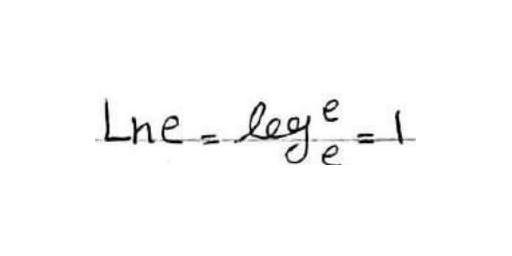 Ln e = log_e^e = 1